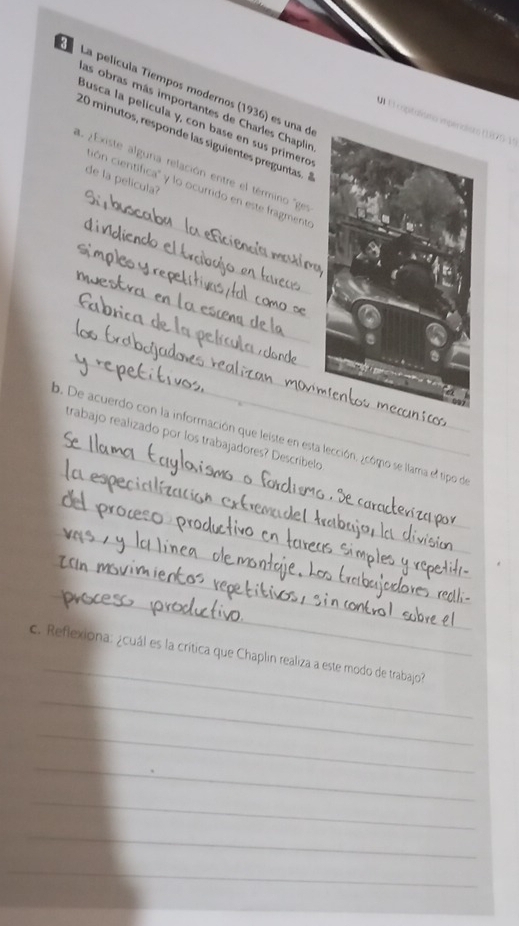 3 La película Tiempos modernos (1936) es una de
las obras más importantes de Charles Chaplin.
Busca la película y, con base en sus primeros
20 minutos, responde las siguientes preguntas.
a. ¿Existe alguna relación entre el término "ges-
tión científica" y lo ocurrido en este fragmento
de la película?
Si, buscaba la eficiencia maxima,
dividiendo el trabajo en tareas
simples y repetitivas, tal como se
muestra en la escena de la
fabrica de la pelicula, donde
los trabajadores realizan movimientos mecanicos
y repetitivos.
b. De acuerdo con la información que leíste en esta lección, ¿cómo se llama el tipo de
trabajo realizado por los trabajadores? Descríbelo
Se llama taylorismo o fordismo. Se caracteriza por
la especialización extrema del trabajo, la division
del proceso productivo en tareas simples y repetiti-
vas, y la linea de montaje. Los trabajadores reali-
zan movimientos repetitivos, sin control sobre el
proceso productivo.
c. Reflexiona: ¿cuál es la crítica que Chaplin realiza a este modo de trabajo?